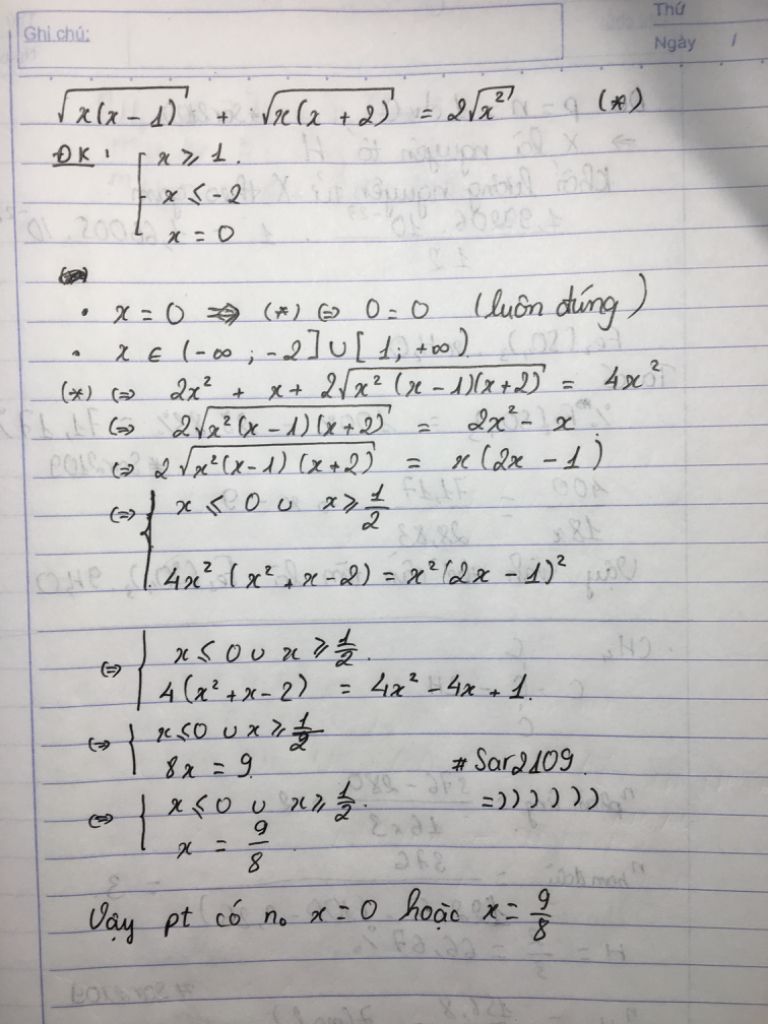 Thứ
Ghi chú:
Ngày /
√(x(x - 1)) + √(x(x + 2)) = 2√(x²) (*)
ĐK: [ x ≥ 1.
x ≤ -2
x = 0
• x = 0 ⇒ (*) ⇔ 0 = 0 (luôn đúng)
• x ∈ (-∞; -2] ∪ [1; +∞)
(*) ⇔ 2x² + x + 2√(x²(x - 1)(x + 2)) = 4x²
⇔ 2√(x²(x - 1)(x + 2)) = 2x² - x.
⇔ 2√(x²(x - 1)(x + 2)) = x(2x - 1)
⇔ { x ≤ 0 ∪ x ≥ 1/2
4x²(x² + x - 2) = x²(2x - 1)²
⇔ { x ≤ 0 ∪ x ≥ 1/2.
4(x² + x - 2) = 4x² - 4x + 1.
⇔ { x ≤ 0 ∪ x ≥ 1/2
8x = 9. #Sar2109.
⇔ { x ≤ 0 ∪ x ≥ 1/2. =))))))
x = 9/8.
Vậy pt có n₀ x = 0 hoặc x = 9/8